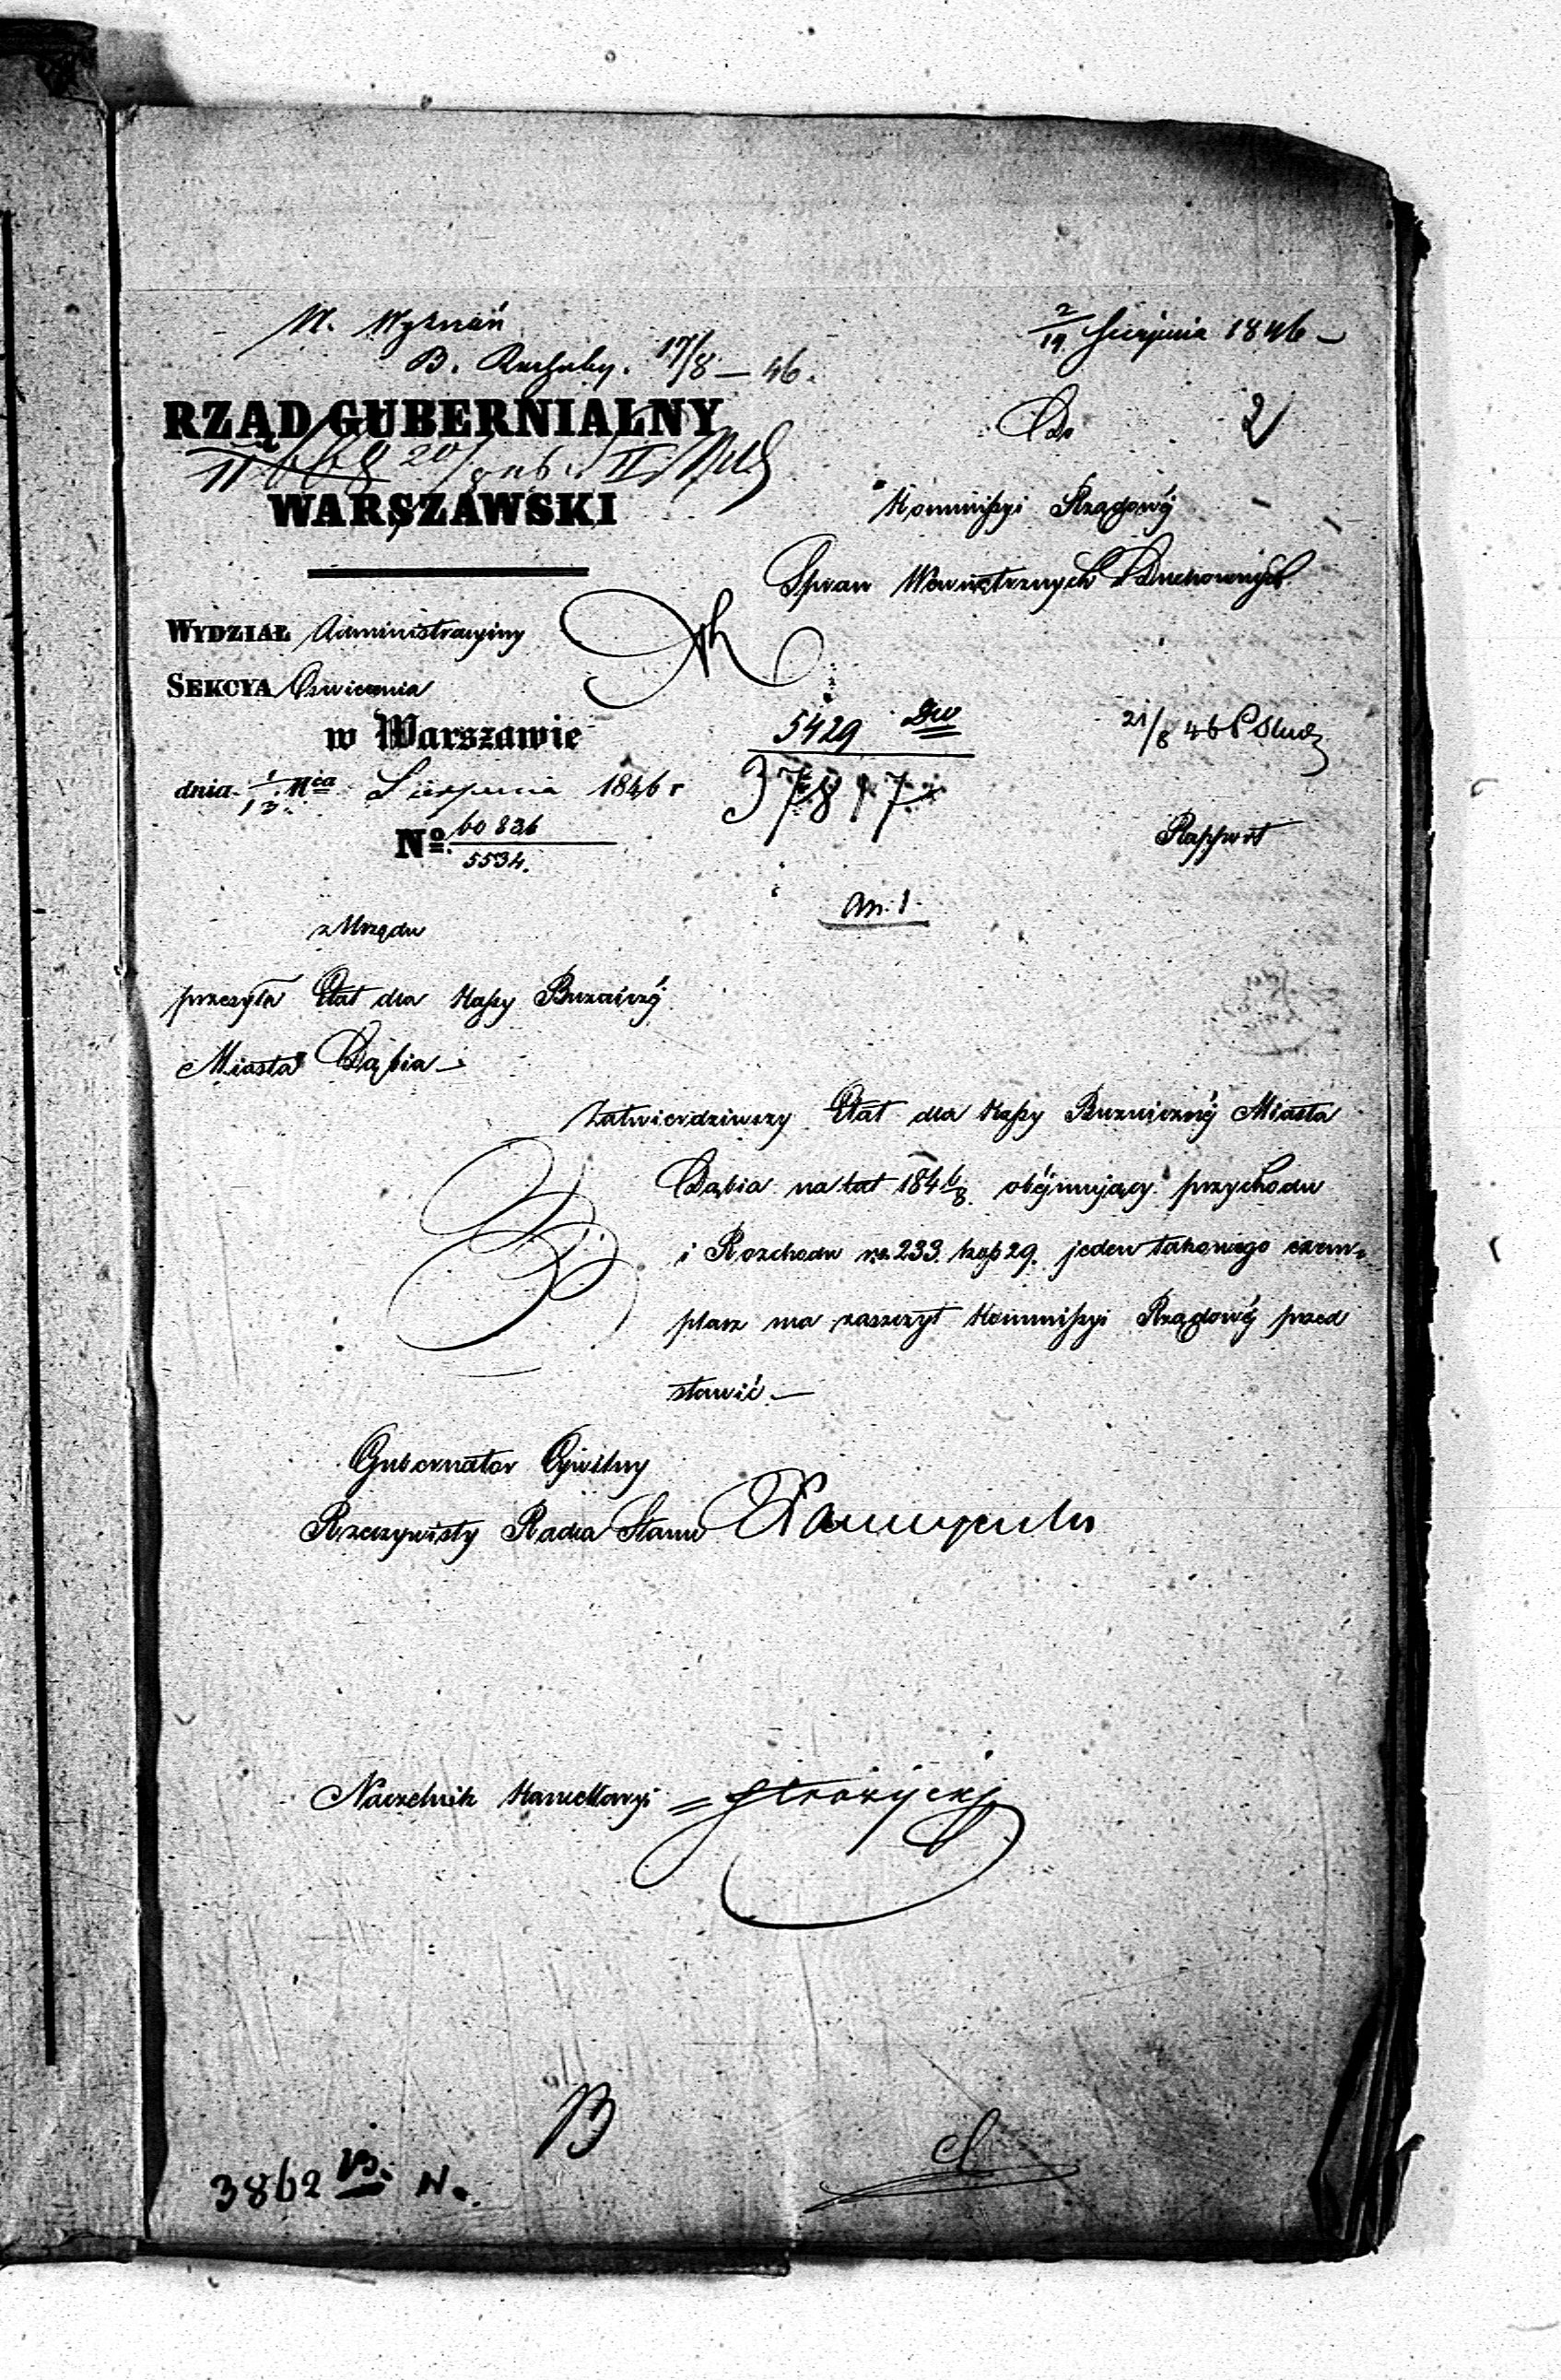 W. Wyznań
2/14 Sierpnia 1846
B. 17/8 – 46.
RZĄD GUBERNIALNY
Do
2
WARSZAWSKI
Kommissyi Rządowéj
Spraw Wewnętrznych i Duchownych
WYDZIAŁ Administracyiny
SEKCYA Oświecenia
w Warszawie
5429
21/8 46
dnia 1/13 Mca Sierpnia 1846 r
37817
No. 60836
5534.
Rapport
an. 1.
z Urzędu
przesyła Etat dla Kassy Bużniczéj
Miasta Dąbia –
Zatwierdziwszy Etat dla Kassy Bużniczéj Miasta
Dąbia na lat 1846/8 obéjmujący przychodu
i Rozchodu rs. 233. kop 29. jeden takowego exem-
plarz ma zaszczyt Kommissyi Rządowéj przed
stawić. –
Gubernator Cywilny
Rzeczywisty Radca Stanu
Naczelnik Kancellaryi
B
3862 N.